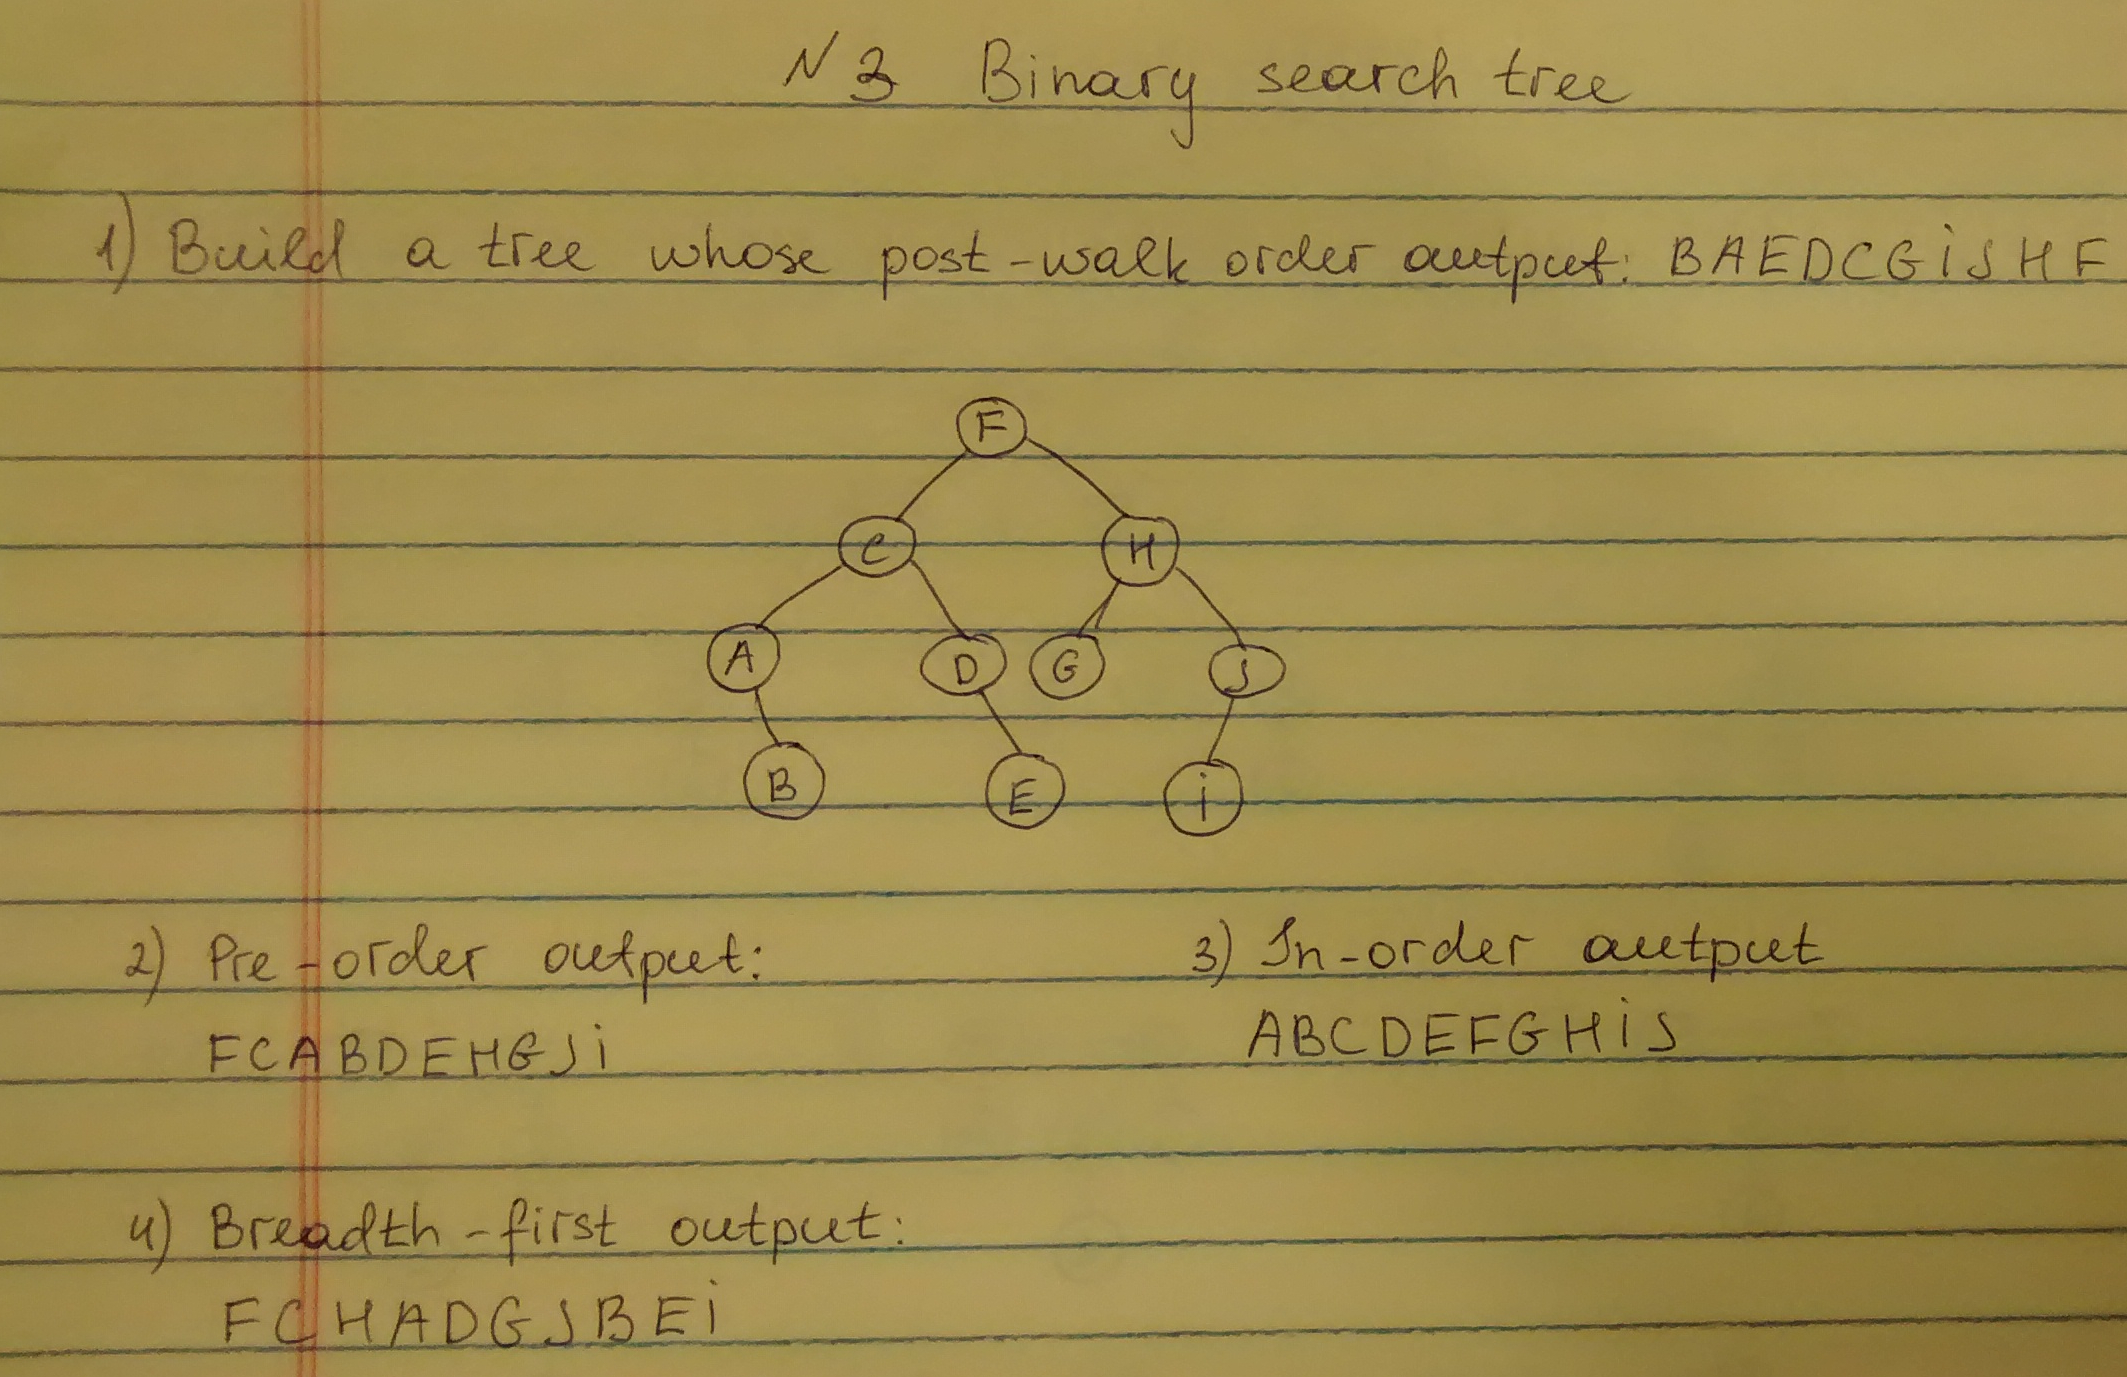 N 3 Binary search tree
1) Build a tree whose post-walk order output: BAEDCGiJHF
F
C H
A D G J
B E i
2) Pre-order output:
FCABDEHGJi
3) In-order output
ABCDEFGHiJ
4) Breadth-first output:
FCHADGJBEi